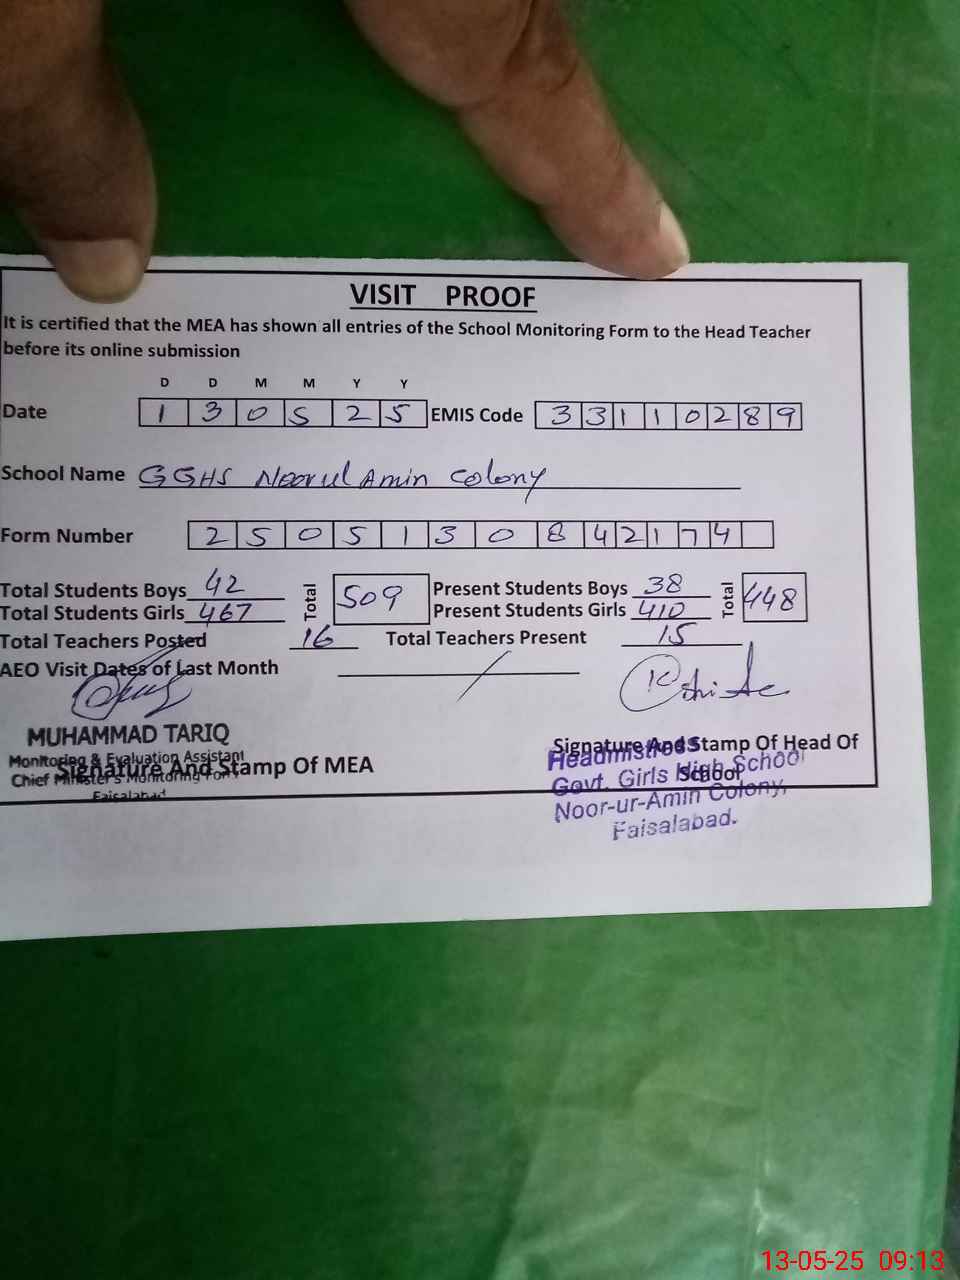 VISIT PROOF
It is certified that the MEA has shown all entries of the School Monitoring Form to the Head Teacher
before its online submission
D D M M Y Y
Date 1 3 0 5 2 5 EMIS Code 3 3 1 1 0 2 8 9
School Name GGHS Noorul Amin Colony
Form Number 2 5 0 5 1 3 0 8 4 2 1 7 4
Total Students Boys 42 Total 509 Present Students Boys 38 Total 448
Total Students Girls 467 Present Students Girls 410
Total Teachers Posted 16 Total Teachers Present 15
AEO Visit Dates of Last Month /
MUHAMMAD TARIQ
Monitoring & Evaluation Assistant
Chief Minister's Monitoring Force
Faisalabad
Signature And Stamp Of MEA
Signature And Stamp Of Head Of
School
Headmistress
Govt. Girls High School
Noor-ur-Amin Colony,
Faisalabad.
13-05-25 09:13